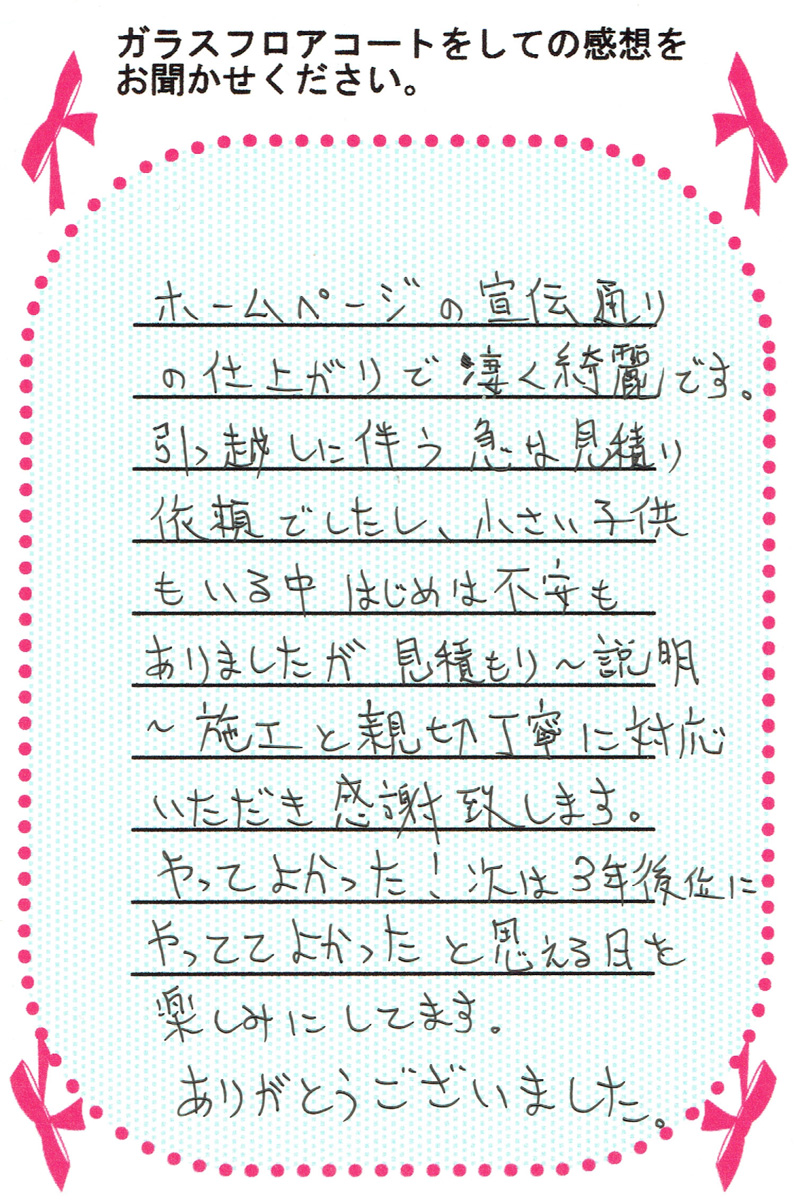 ガラスフロアコートをしての感想を
お聞かせください。
ホームページの宣伝通り
の仕上がりで凄く綺麗です。
引っ越しに伴う急な見積り
依頼でしたし、小さい子供
もいる中はじめは不安も
ありましたが見積もり～説明
～施工と親切丁寧に対応
いただき感謝致します。
やってよかった！次は3年後位に
やっててよかったと思える日を
楽しみにしてます。
ありがとうございました。